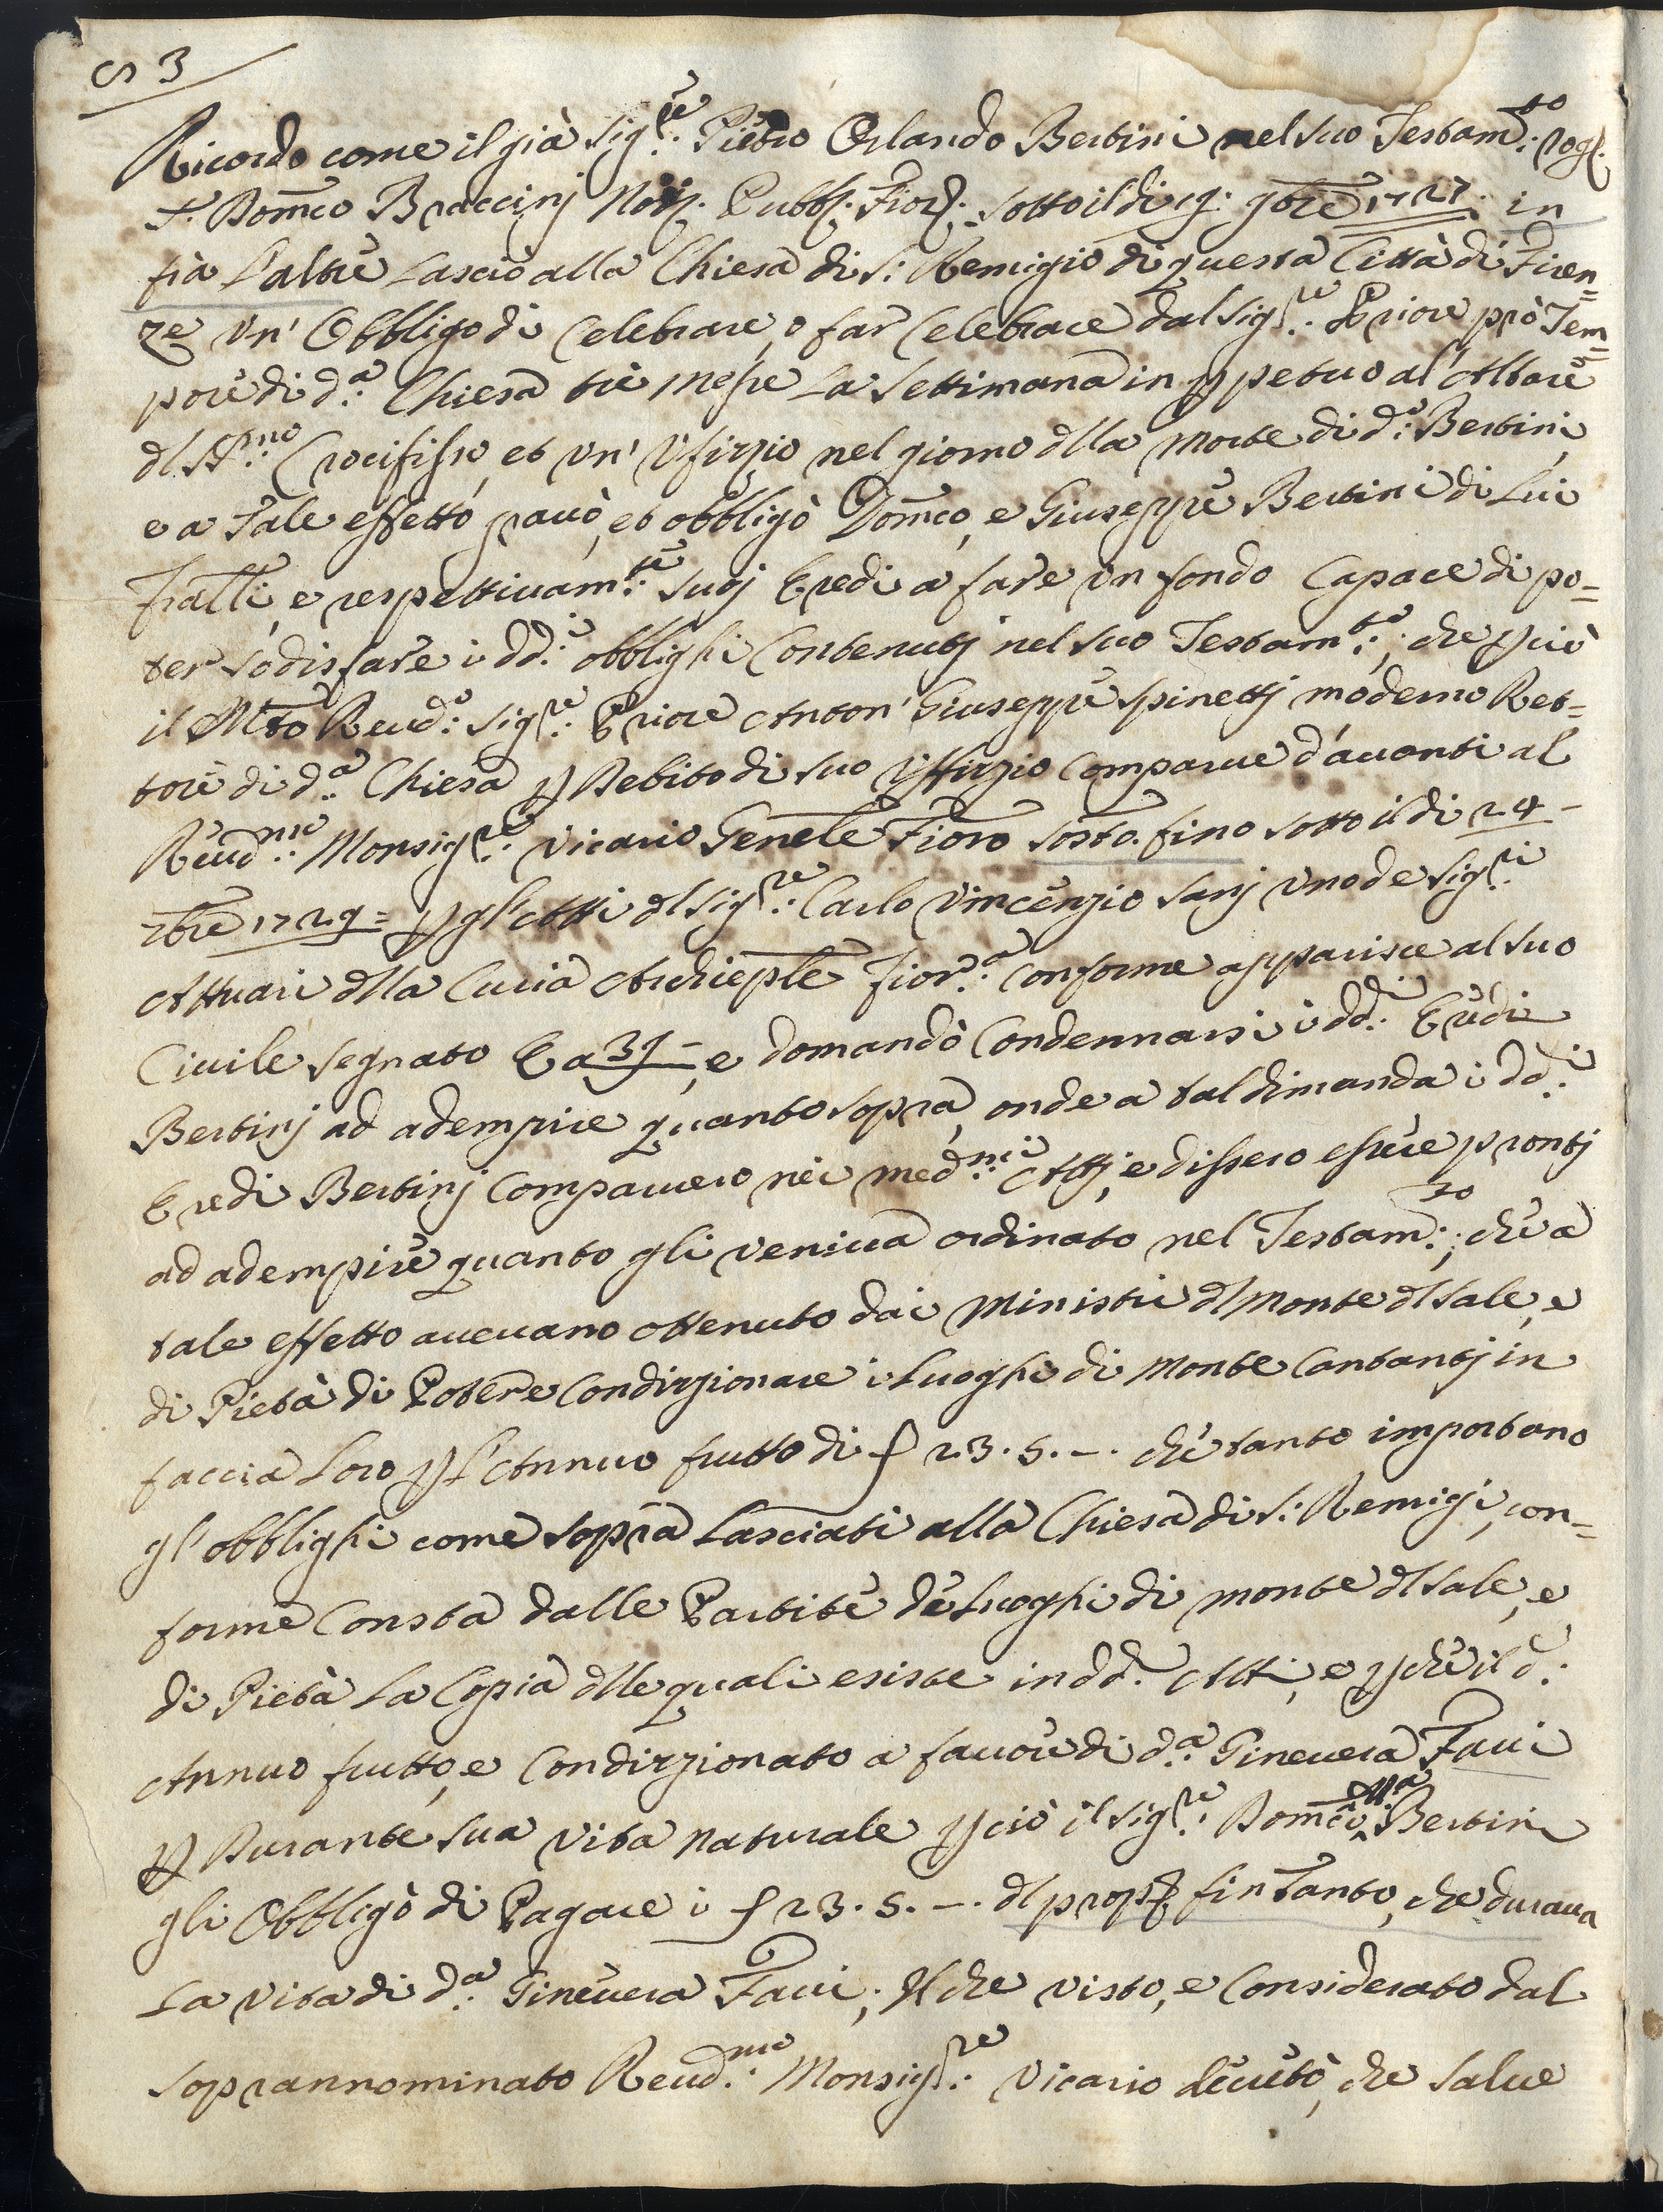 S 3
Ricordo come il già Sig.re Pietro Orlando Bertini nel suo Testam.to rog.
S. Dom̃co Braccinj Not. Pubb. Fior. sotto il di 19: 9bre 1727: in
fra l'altre lasciò alla Chiesa di S: Remigio di questa Città di Firen=
ze vn' Obbligo di Celebrare, o far Celebrare dal Sig.re Priore prò Tem=
pore di d.a Chiesa tre Messe la Settimana in ꝑpetuo al'Altare
dl SS.mo Crocifisso, et vn' Vfizzio nel giorno dlla Morte di d.o Bertini,
e a Tale effetto gravò, et obbligò Dom̃co, e Giuseppe Bertini di Lui
Fratlli, e respettivam.te suoj Eredi a fare vn fondo Capace di po=
ter sodisfare i dd.i obblighi Contenutj nel suo Testam.to; che ꝑciò
il Mto Revd.o Sig.re Priore Anton' Giuseppe Spinettj moderno Ret=
tore di d.a Chiesa ꝑ Debito di suo Vffizzio Comparue d'auanti al
Reud.mo Monsig.re Vicario Genele Fioro sosto. fino sotto il di 24 –
7bre 1729= ꝑ gl'Atti dl Sig.re Carlo Vincenzio Sanj vno de Sig.ri
Attuari dlla Curia Archieple Fior.a Conforme apparisce al suo
Ciuile segnato E a 39 –, e domandò Condennarsi i dd.i Eredi
Bertinj ad adempire quanto sopra, onde a tal dimanda i dd.i
Eredi Bertinj Comparuero nei med.mi Attj, e dissero essere prontj
ad adempire quanto gli veniua ordinato nel Testam.to; che a
tale effetto aueuano ottenuto dai Ministri dl Monte dl Sale, e
di Pietà di Potere Condizzionare i Luoghi di Monte Cantantj in
faccia Loro ꝑ l'Annuo frutto di ƒ 23. 5. –. che tanto importano
gl'obblighi come sopra Lasciati alla Chiesa di S: Remigi, con=
forme Consta dalle Partite de Luoghi di monte dl Sale, e
di Pietà La Copia dlle quali esiste in dd.i Atti, e ꝑche il d.o
Annuo frutto, e Condizzionato a fauore di d.a Gineuera Faui
ꝑ Durante sua vita naturale ꝑciò il Sig.re Dom̃co Ma Bertini
gli Obbligò di Pagare i ƒ 23. 5. –. dl prop.o fin Tanto, che duraua
La vita di d.a Gineuera Faui; Il che visto, e Considerato dal
soprannominato Reud.mo Monsig.re Vicario decretò, che Salue